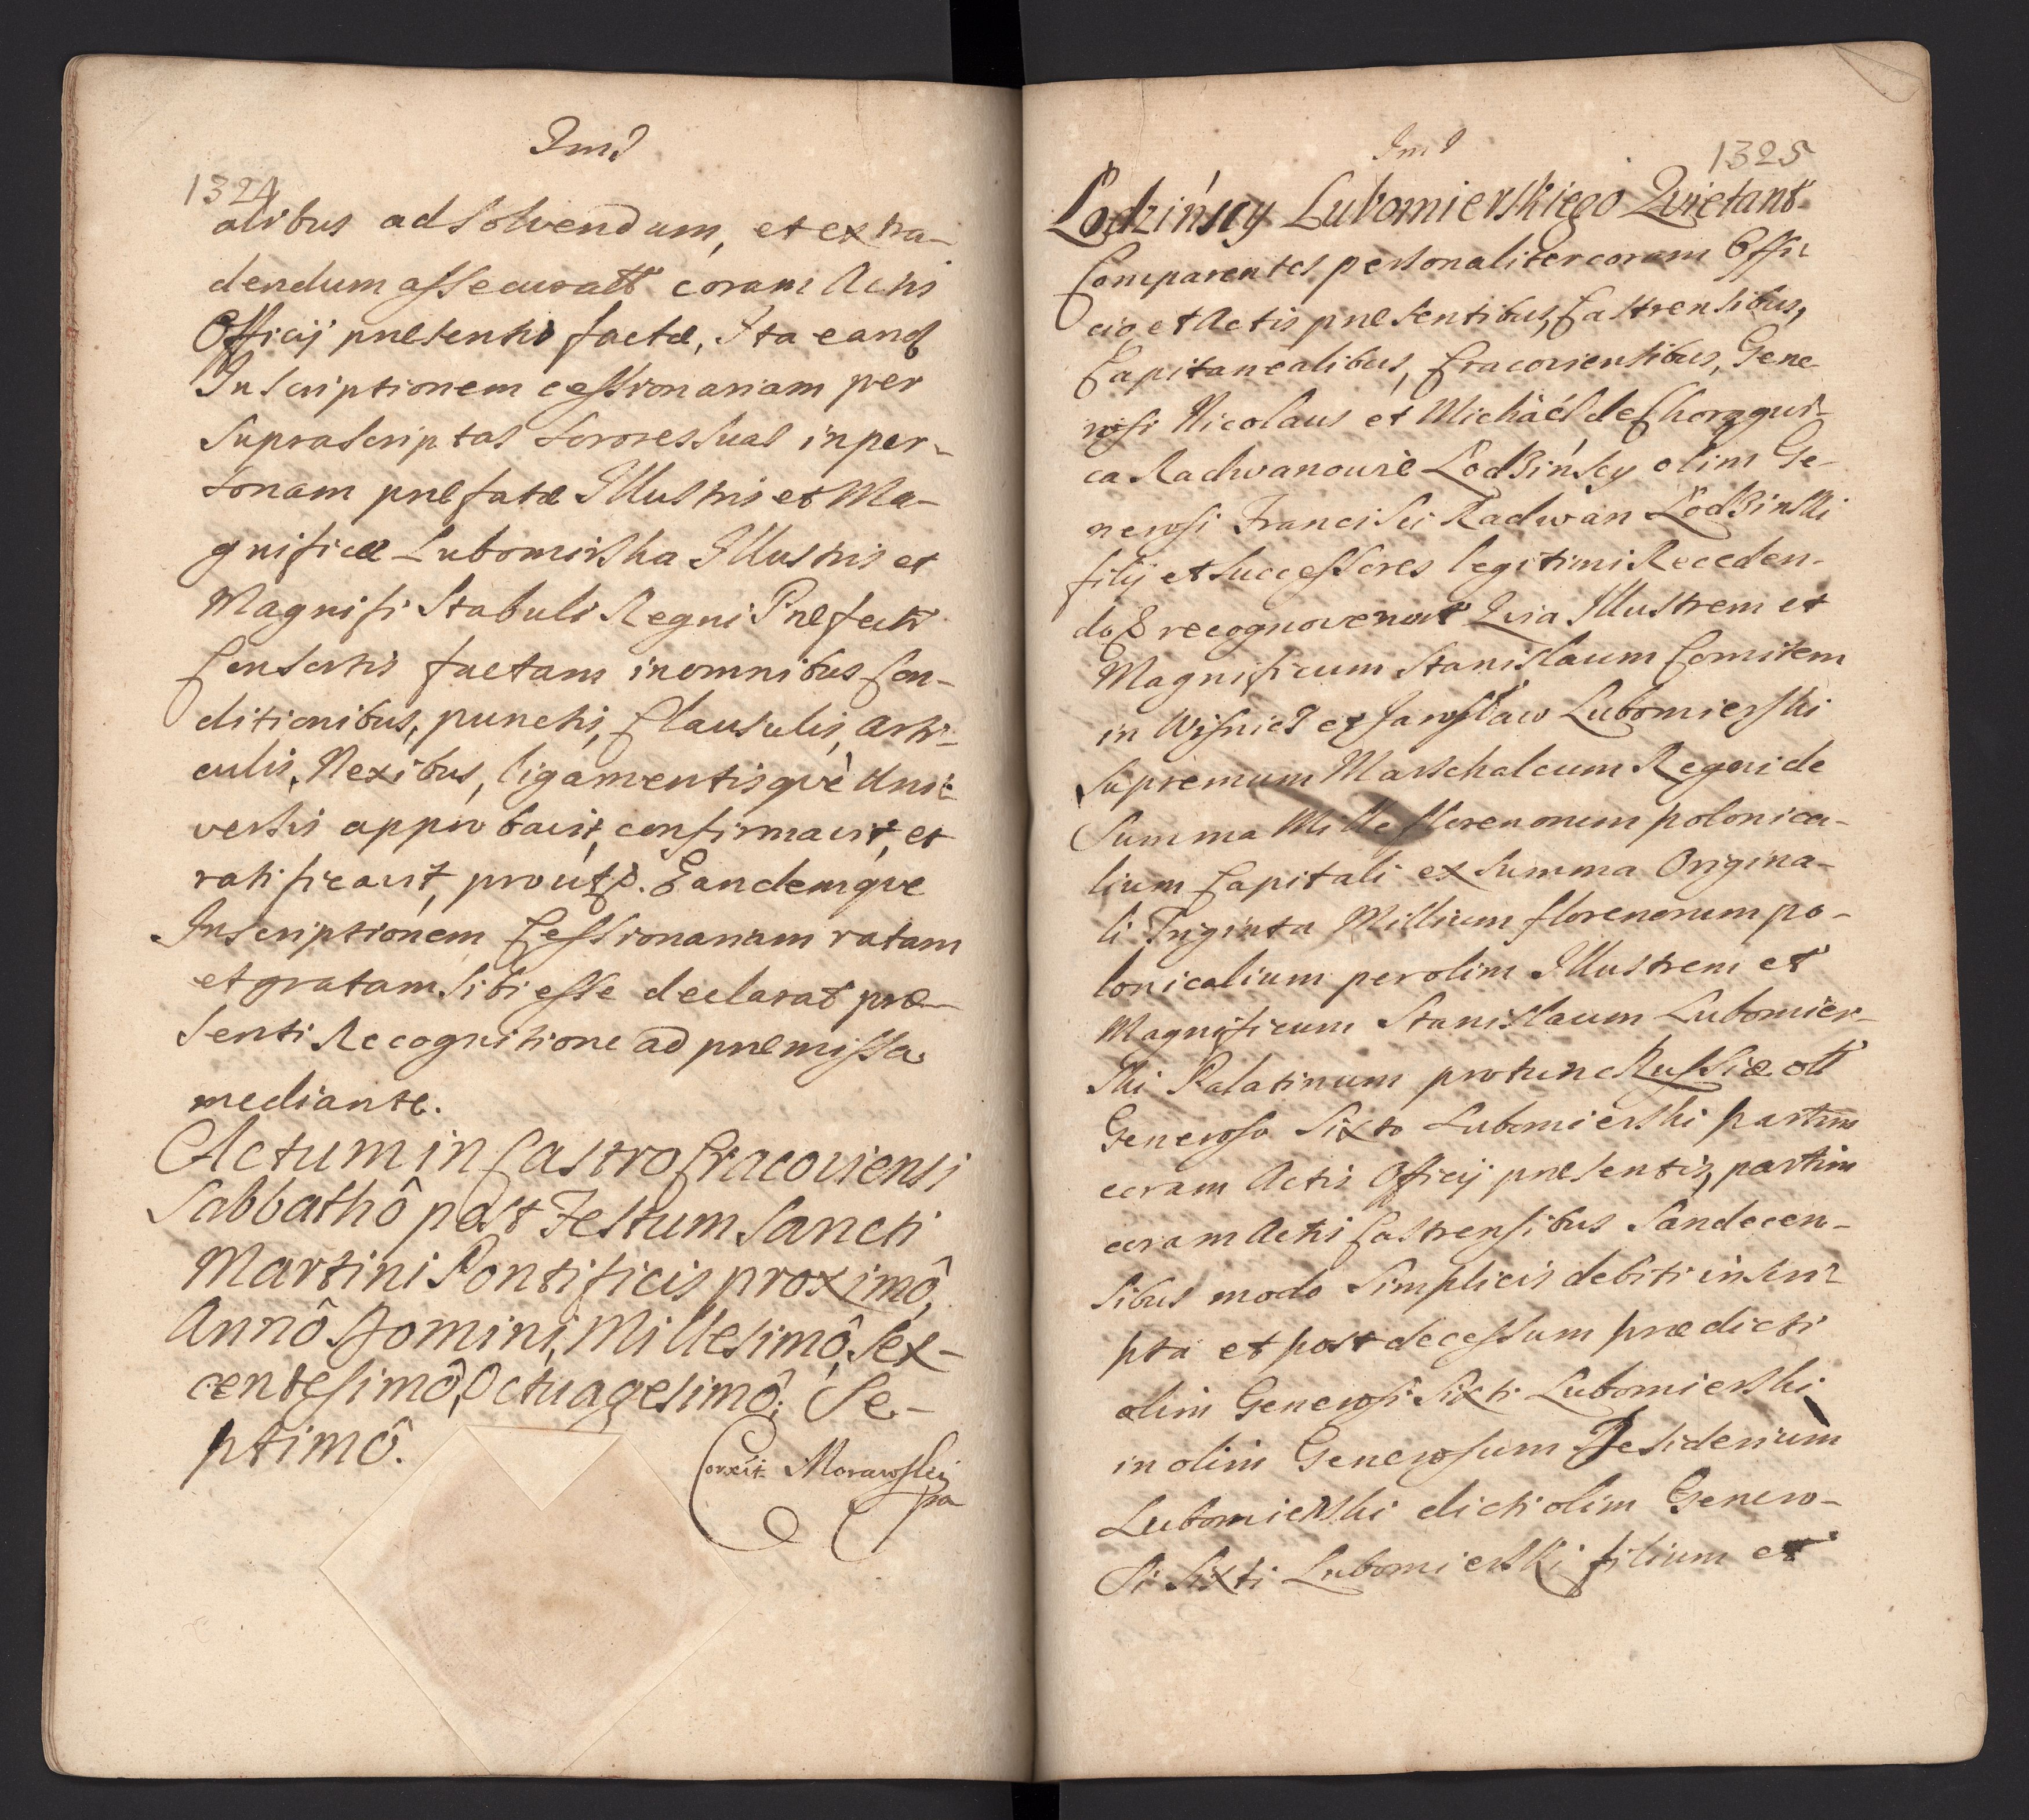 1324
alibus ad Solvendum, et extra-
dendum assecuratt coram Actis
Officij præsentis factæ, Ita eand
Inscriptionem cessionariam per
Suprascriptas Sorores Suas in per-
sonam præfatæ Illustris et Ma-
gnificæ Lubomirska Illustris et
Magnifi Stabuli Regni Præfecti
Consortis factam in omnibus Con-
ditionibus, punctis, Clausulis, Arti-
culis, Nexibus, ligamentisqvè Uni-
versis approbavit, confirmavit, et
ratificavit, prout. Eandemqve
Inscriptionem Cessionariam ratam
et gratam Sibi esse declarat præ-
senti Recognitione ad præmissa
mediante.
Actum in Castro Cracoviensi
Sabbathô post Festum Sancti
Martini Pontificis proximô,
Annô Domini, Millesimô, Sex-
centesimô, Octuagesimô, Se-
ptimô.
Corexit Morawski
1325
Lodzińscy Lubomierskiego Qvietant
Comparentes personaliter coram Offi-
cio et Actis præsentibus, Castrensibus,
Capitanealibus, Cracoviensibus, Gene
rosi Nicolaus et Michäel de
ca Radwanowie Lodzińscy olim Ge-
nerosi Francisci Radwan Lodzinski
filij et Successores legitimi Receden-
do recognoverunt Qvia Illustrem et
Magnificum Stanislaum Comitem
in Wisnicz et Jaroslaw Lubomierski
Supremum Marschalcum Regni de
Summa Mille florenorum polonica-
lium Capitali ex Summa Origina-
li Triginta Millium florenorum po-
lonicalium per olim Illustrem et
Magnificum Stanislaum Lubomier-
ski Palatinum protunc Russiæ
Generoso Sixto Lubomierski partim
coram Actis Officij præsentis, partim
coram Actis Castrensibus Sandecen-
sibus modo Simplicis debiti inscri-
pta et post decessum prædicti
olim Generosi Sixti Lubomierski
in olim Generosum Desiderium
Lubomierski dicti olim Genero-
si Sixti Lubomierski filium et